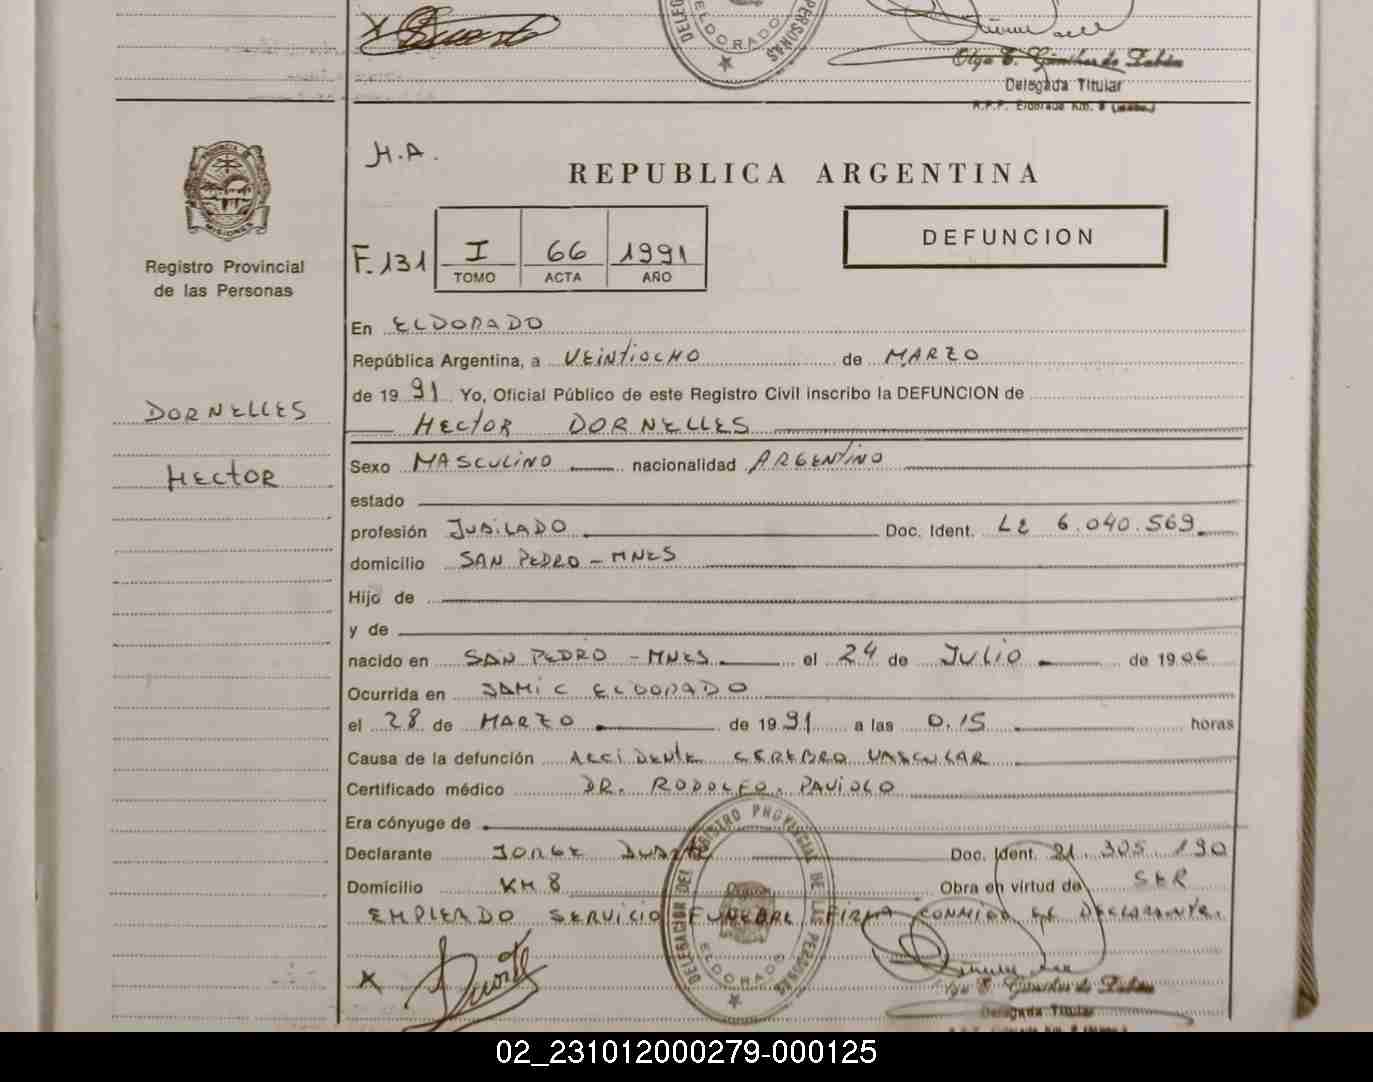 DELEG
PERSONAS
ELDORADO
Olga E. Günther de Zabán
Delegada Titular
R.P.P. Eldorado Km. 8 (Mnes.)
PROVINCIA DE
MISIONES
H.A.
REPUBLICA ARGENTINA
DEFUNCION
F.131 I 66 1991
TOMO ACTA AÑO
Registro Provincial
de las Personas
En ELDORADO
República Argentina, a VEINTIOCHO de MARZO
de 1991 Yo, Oficial Público de este Registro Civil inscribo la DEFUNCION de
HECTOR DORNELLES
DORNELLES
HECTOR
Sexo MASCULINO nacionalidad ARGENTINO
estado
profesión JUBILADO Doc. Ident. LE 6.040.569
domicilio SAN PEDRO - MNES
Hijo de
y de
nacido en SAN PEDRO - MNES el 24 de JULIO de 1906
Ocurrida en SAMIC ELDORADO
el 28 de MARZO de 1991 a las 0.15 horas
Causa de la defunción ACCIDENTE CEREBRO VASCULAR
Certificado médico DR. RODOLFO PAVIOLO
Era cónyuge de
Declarante JORGE DUARTE Doc. Ident. 21.305.190
Domicilio KM 8 Obra en virtud de SER
EMPLEADO SERVICIO FUNEBRE FIRMA CONMIGO EL DECLARANTE.
DELEGACION DEL REGISTRO PROVINCIAL DE LAS PERSONAS
ELDORADO
X Duarte
Olga E. Günther de Zabán
Delegada Titular
R.P.P. Eldorado Km. 8 (Mnes.)
02_231012000279-000125